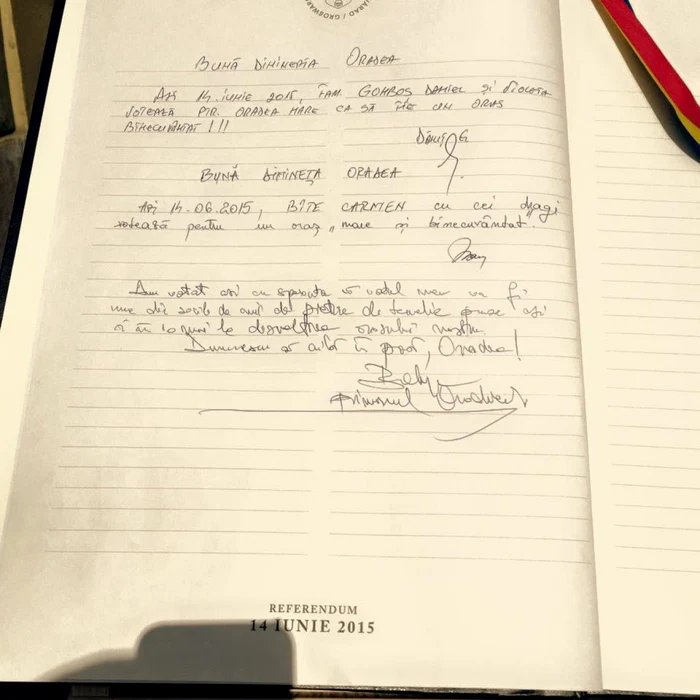 ARAD / GROSWAR
BUNĂ DIMINEAȚA ORADEA
AZI 14 IUNIE 2015, FAM. GOMBOS DANIEL ȘI VIOLETA
VOTEAZĂ PTR. ORADEA MARE CA SĂ FIE UN ORAȘ
BINECUVÂNTAT!!!
BUNĂ DIMINEȚA ORADEA
Azi 14.06.2015, BÎTE CARMEN cu cei dragi
votează pentru un oraș „mare și binecuvântat.
Am votat azi cu speranța că votul meu va fi
una din sutele de mii de pietre de temelie puse azi
la dezvoltarea orașului nostru
Dumnezeu să ne aibă în pază, Oradea!
Primarul Oradiei
REFERENDUM
14 IUNIE 2015